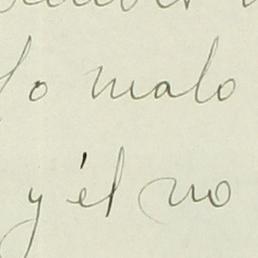 lo malo
y él no